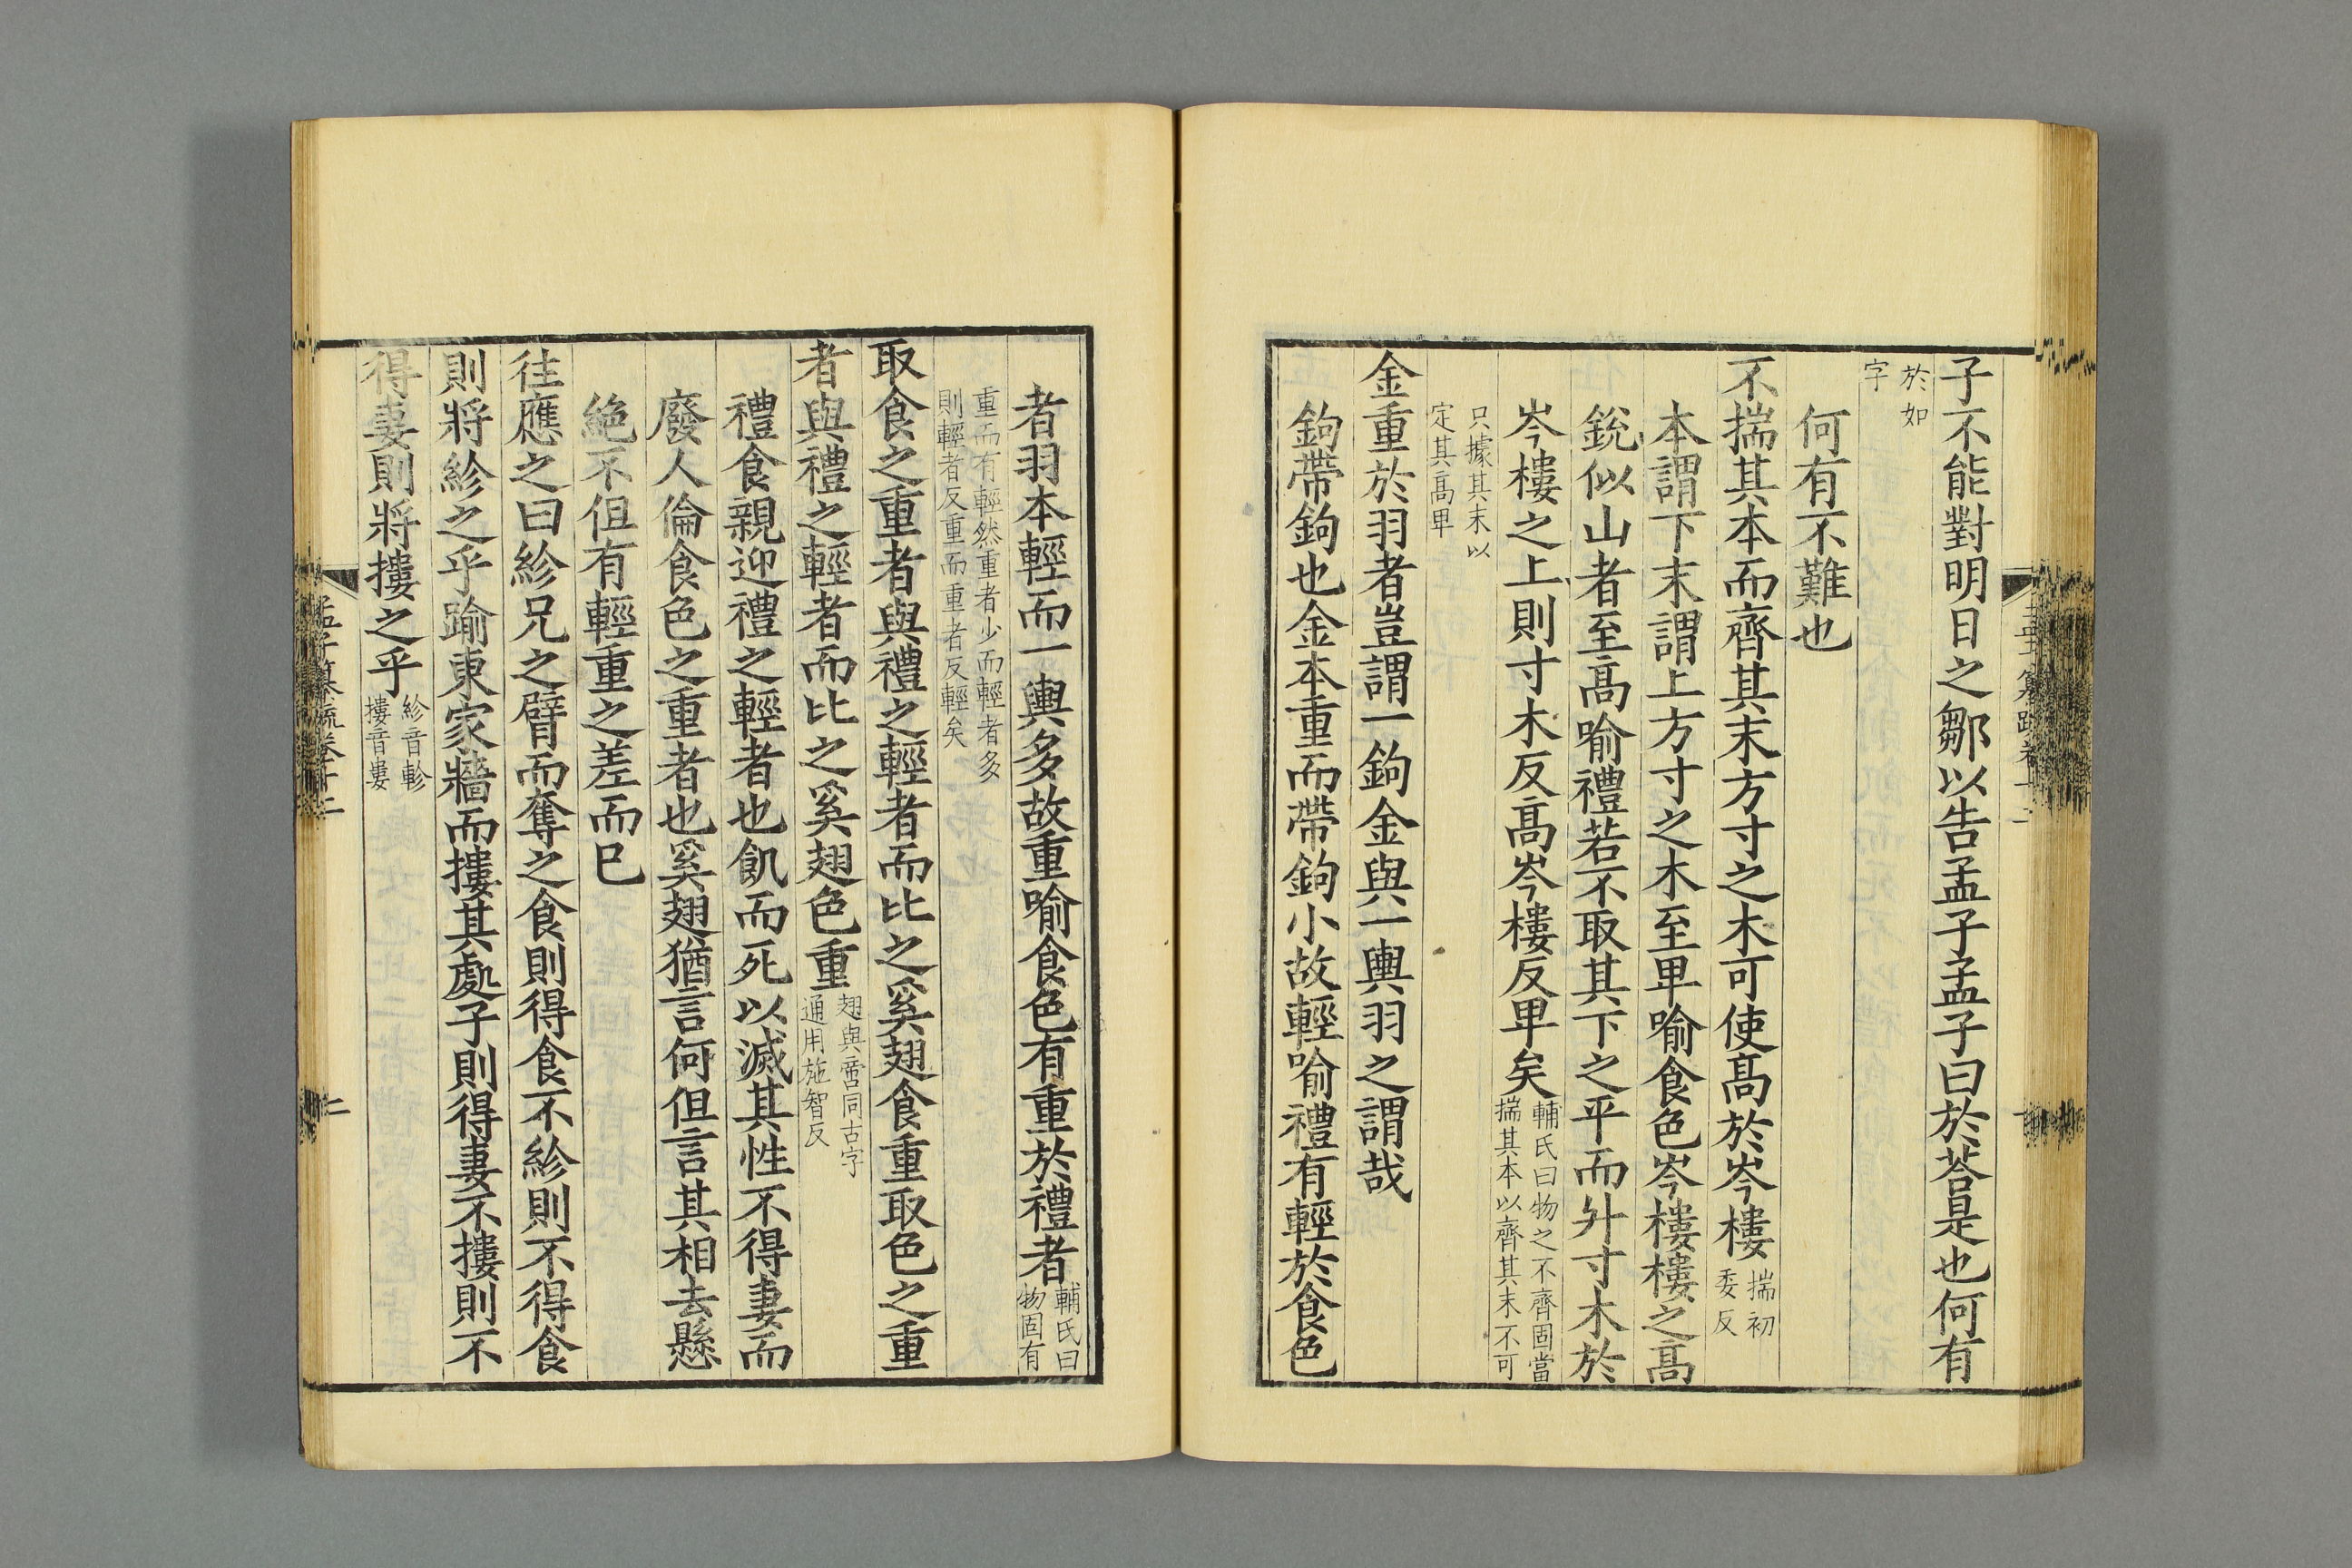 子不能對明日之鄒以告孟子孟子曰於荅是也何有
於如
字
何有不難也
不揣其本而齊其末方寸之木可使髙於岑樓揣初
委反
本謂下末謂上方寸之木至卑喻食色岑樓樓之髙
銳似山者至髙喻禮若不取其下之平而升寸木於
岑樓之上則寸木反髙岑樓反卑矣輔氏曰物之不齊固當
揣其本以齊其末不可
只據其末以
定其髙卑
金重於羽者豈謂一鉤金與一輿羽之謂哉
鉤帶鉤也金本重而帶鉤小故輕喻禮有輕於食色
者羽本輕而一輿多故重喻食色有重於禮者輔氏曰
物固有
重而有輕然重者少而輕者多
則輕者反重而重者反輕矣
取食之重者與禮之輕者而比之奚翅食重取色之重
者與禮之輕者而比之奚翅色重翅與啻同古字
通用施智反
禮食親迎禮之輕者也飢而死以滅其性不得妻而
廢人倫食色之重者也奚翅猶言何但言其相去懸
絕不但有輕重之差而已
往應之曰紾兄之臂而奪之食則得食不紾則不得食
則將紾之乎踰東家牆而摟其處子則得妻不摟則不
得妻則將摟之乎紾音軫
摟音婁
孟子纂疏卷十二
二